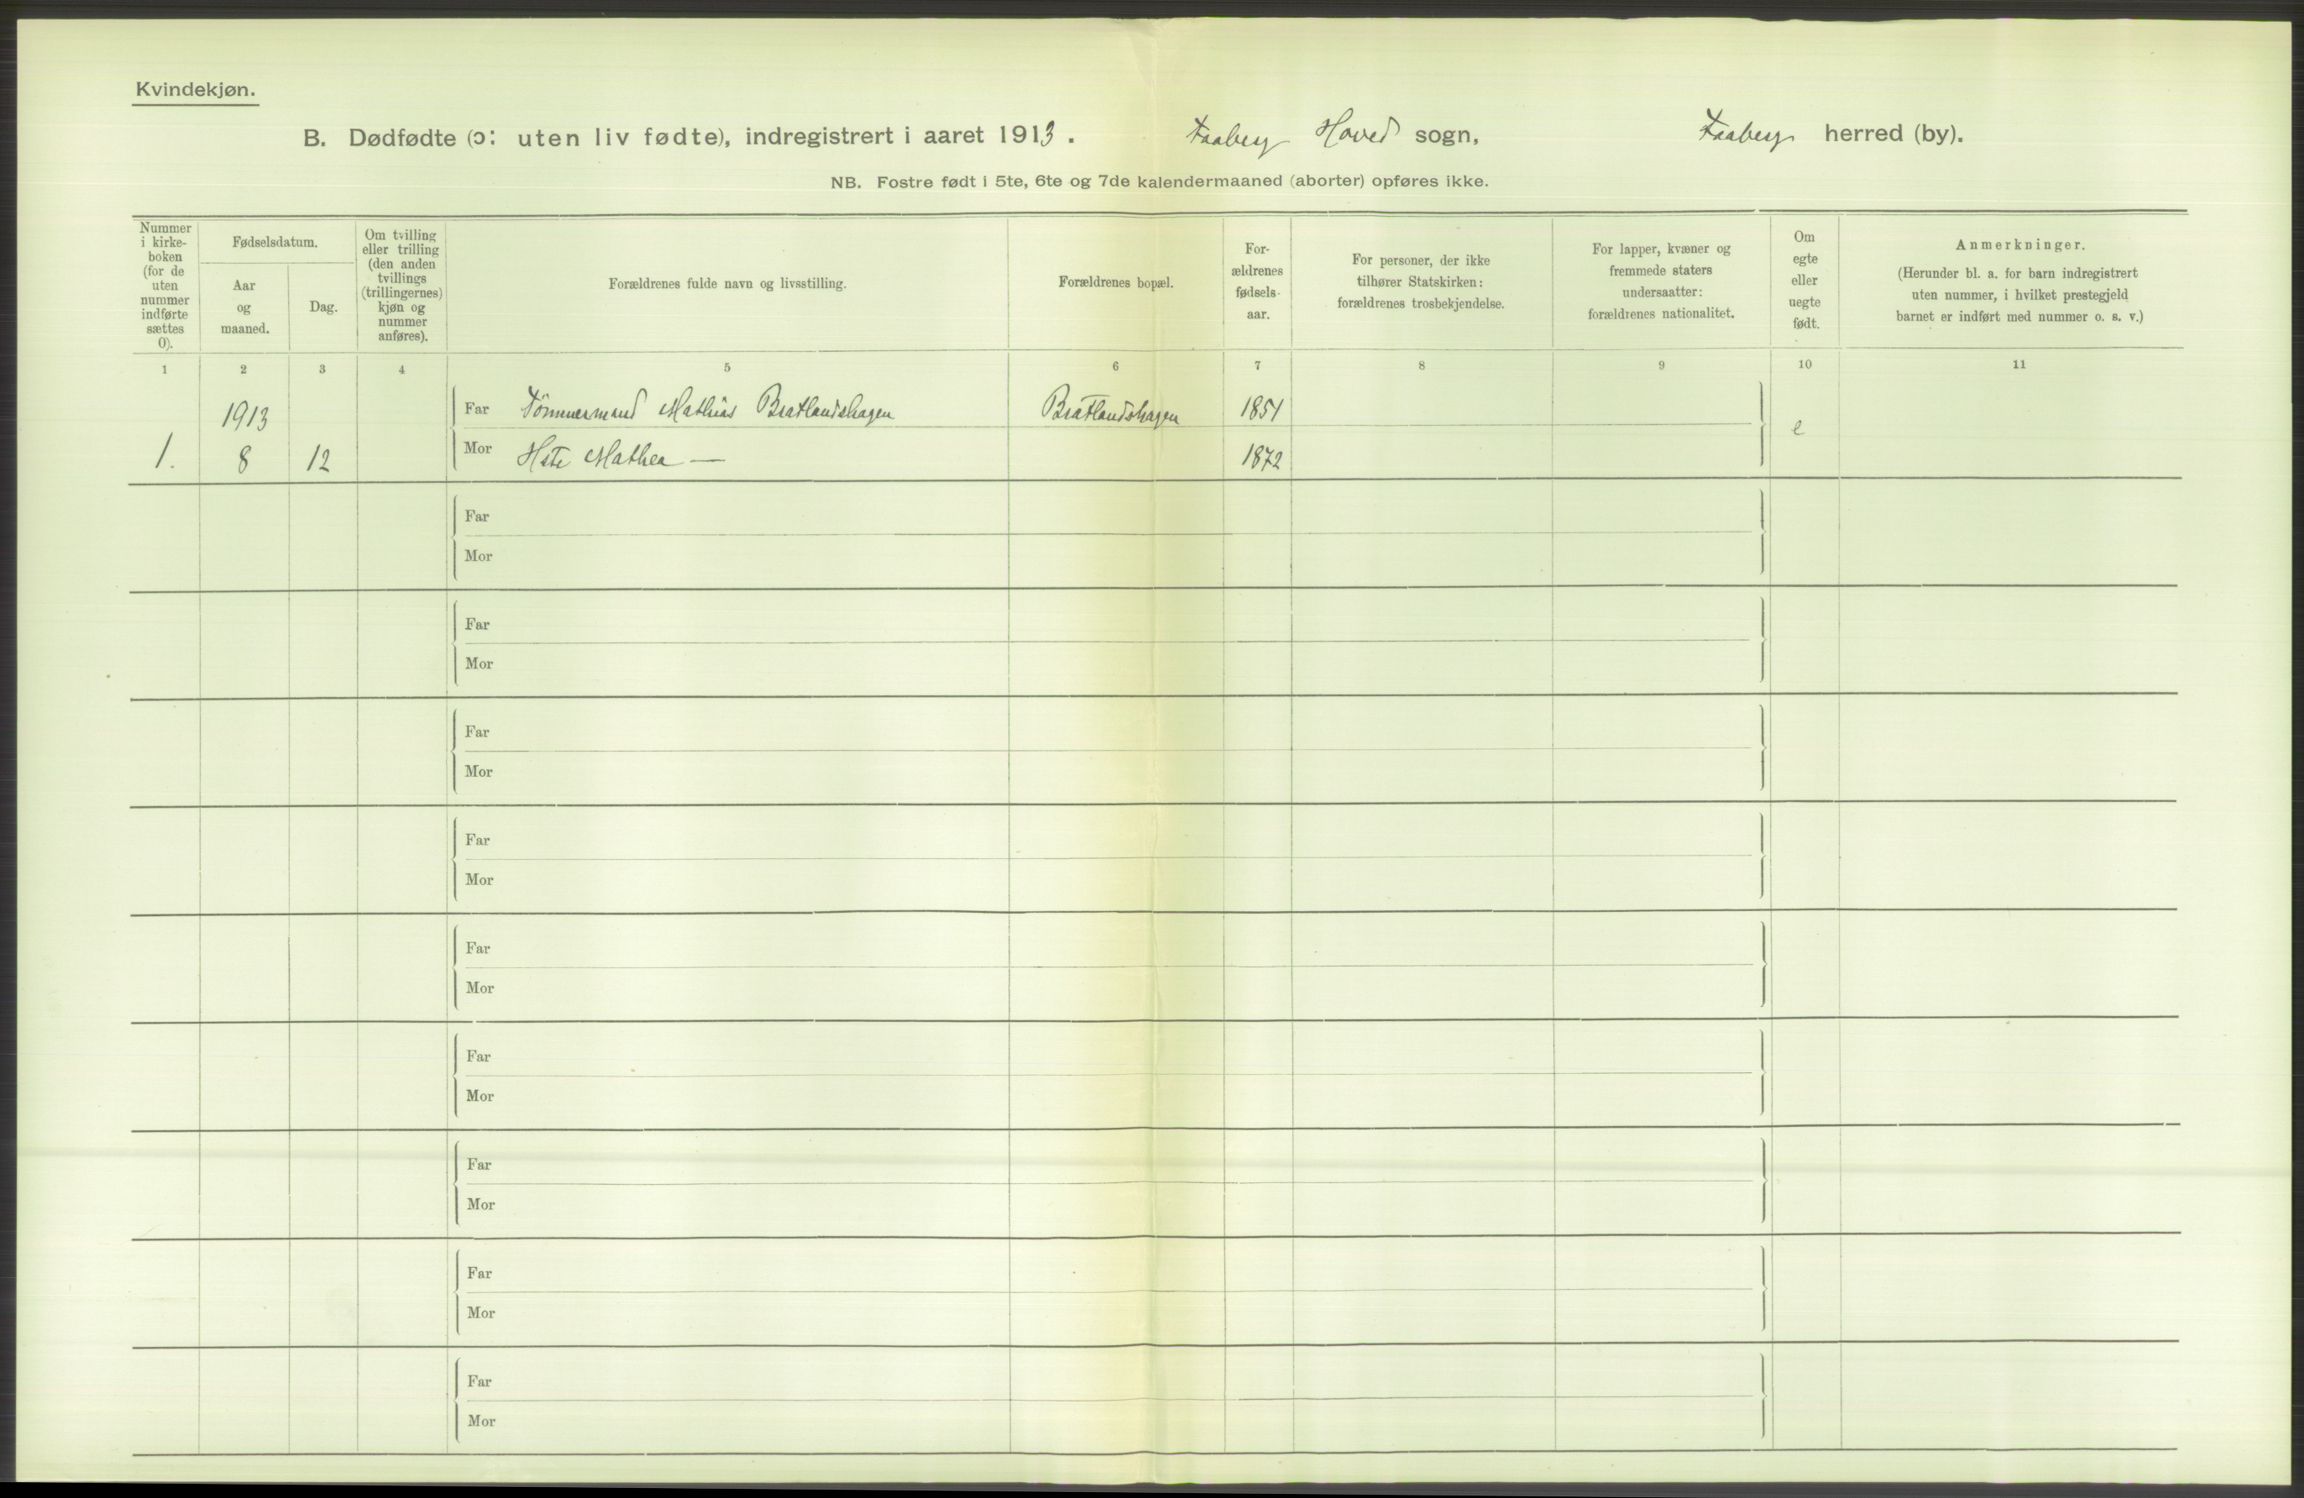 Kvindekjøn.
B. Dødfødte (ɔ: uten liv fødte), indregistrert i aaret 1913. Faaberg Hoved sogn, Faaberg herred (by).
NB. Fostre født i 5te, 6te og 7de kalendermaaned (aborter) opføres ikke.
Nummer
i kirke-
boken
(for de
uten
nummer
indførte
sættes
0).
Fødselsdatum.
Aar
og
maaned.
Dag.
Om tvilling
eller trilling
(den anden
tvillings
(trillingernes)
kjøn og
nummer
anføres).
Forældrenes fulde navn og livsstilling.
Forældrenes bopæl.
For-
ældrenes
fødsels-
aar.
For personer, der ikke
tilhører Statskirken:
forældrenes trosbekjendelse.
For lapper, kvæner og
fremmede staters
undersaatter:
forældrenes nationalitet.
Om
egte
eller
uegte
født.
Anmerkninger.
(Herunder bl. a. for barn indregistrert
uten nummer, i hvilket prestegjeld
barnet er indført med nummer o. s. v.)
1 2 3 4 5 6 7 8 9 10 11
1913 Far Tömmermand Mathias Bratlandshagen Bratlandshagen 1851
e
1. 8 12 Mor Mathea — 1872
Far
Mor
Far
Mor
Far
Mor
Far
Mor
Far
Mor
Far
Mor
Far
Mor
Far
Mor
Far
Mor